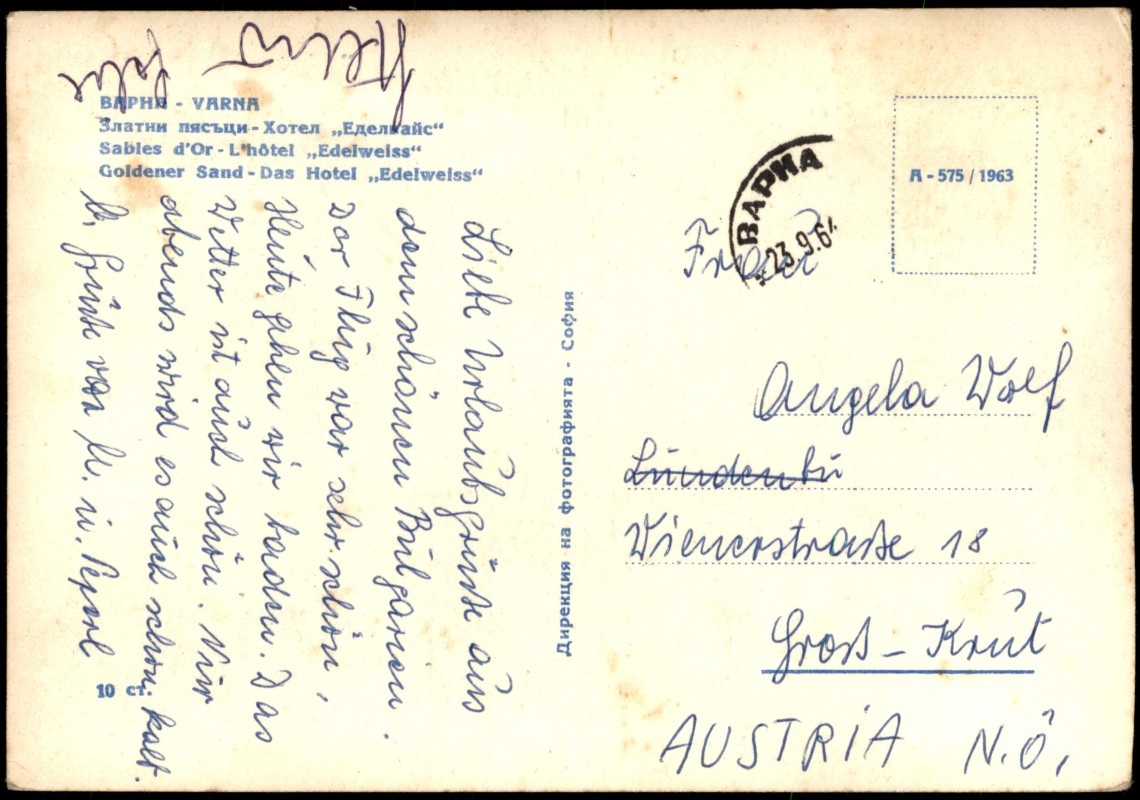 ВАРНА - VARNA
Златни пясъци - Хотел „Еделвайс“
Sables d'Or - L'hôtel „Edelweiss“
Goldener Sand - Das Hotel „Edelweiss“
Liebe Urlaubsgrüße aus
dem schönen Bulgarien.
Der Flug war sehr schön,
Heute gehen wir baden. Das
Wetter ist auch schön. Nur
abends wird es auch schon kalt.
Grüße von M. u. Peperl
10 ст.
Дирекция на фотографията - София
A - 575 / 1963
ВАРНА
23.9.64
Angela Wolf
Lundenbu
Wienerstraße 18
Groß-Krut
AUSTRIA N.Ö.